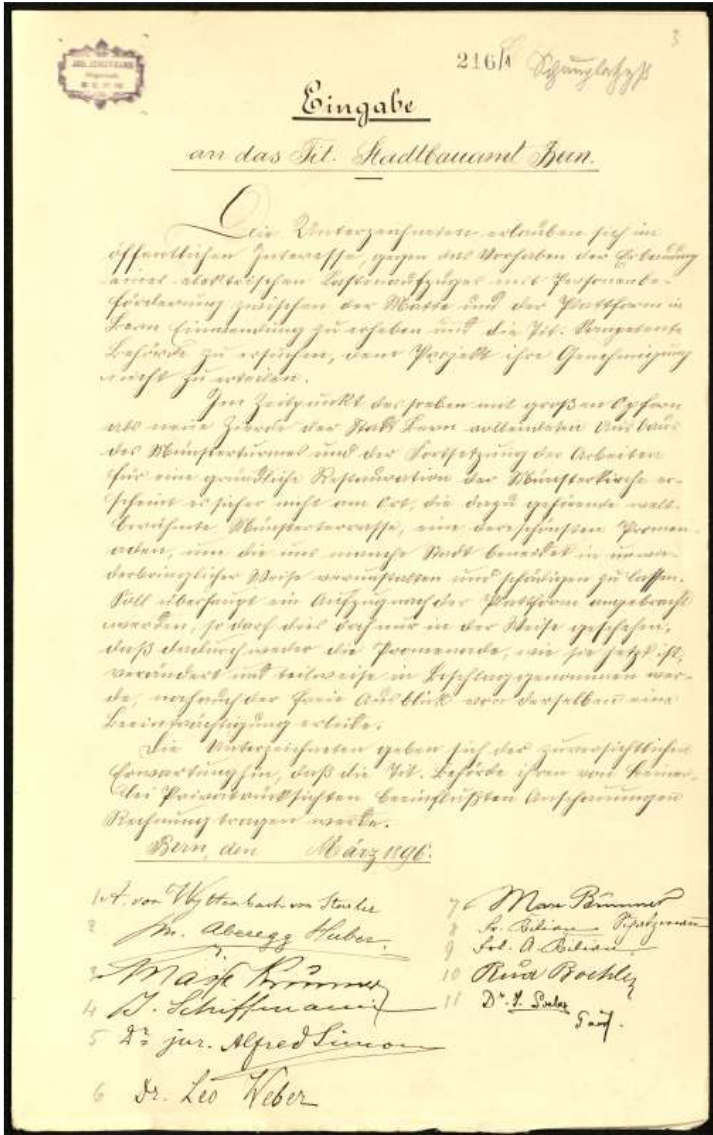 3
216/1
Eingabe
an das Tit. Stadtbauamt Bern.
Die Unterzeichneten erlauben sich im
öffentlichen Interesse, gegen das Vorhaben der Erbauung
eines elektrischen Lastenaufzuges mit Personenbe-
förderung zwischen der Matte und der Plattform in
Bern Einwendung zu erheben und die Tit. kompetente
Behörde zu ersuchen, dem Projekt ihre Genehmigung
nicht zu erteilen.
Im Zeitpunkt des soeben mit großen Opfern
als neue Zierde der Stadt Bern vollendeten Ausbaus
des Münsterturmes und der Fortsetzung der Arbeiten
für eine gründliche Restauration der Münsterkirche er-
scheint es sicher nicht am Ort, die dazu gehörende welt-
berühmte Münsterterrasse, eine der schönsten Prome-
naden, um die uns manche Stadt beneidet in unwie-
derbringlicher Weise verunstalten und schädigen zu lassen.
Soll überhaupt ein Aufzug nach der Plattform angebracht
werden, so darf dies doch nur in der Weise geschehen,
daß dadurch weder die Promenade, wie sie jetzt ist,
verändert und teilweise in Beschlag genommen wer-
de, noch auch der freie Ausblick von derselben eine
Beeinträchtigung erleide.
Die Unterzeichneten geben sich der zuversichtlichen
Erwartung hin, daß die Tit. Behörde ihren von keiner-
lei Privatrücksichten beeinflußten Anschauungen
Rechnung tragen werde.
Bern, den März 1896.
1 A. von Wyttenbach von
2 Aberegg Huber.
3
4 J. Schiffmann
5 Dr. jur. Alfred Simon
6 Dr. Leo Weber
7
8
9 A.
10
11 Dr.